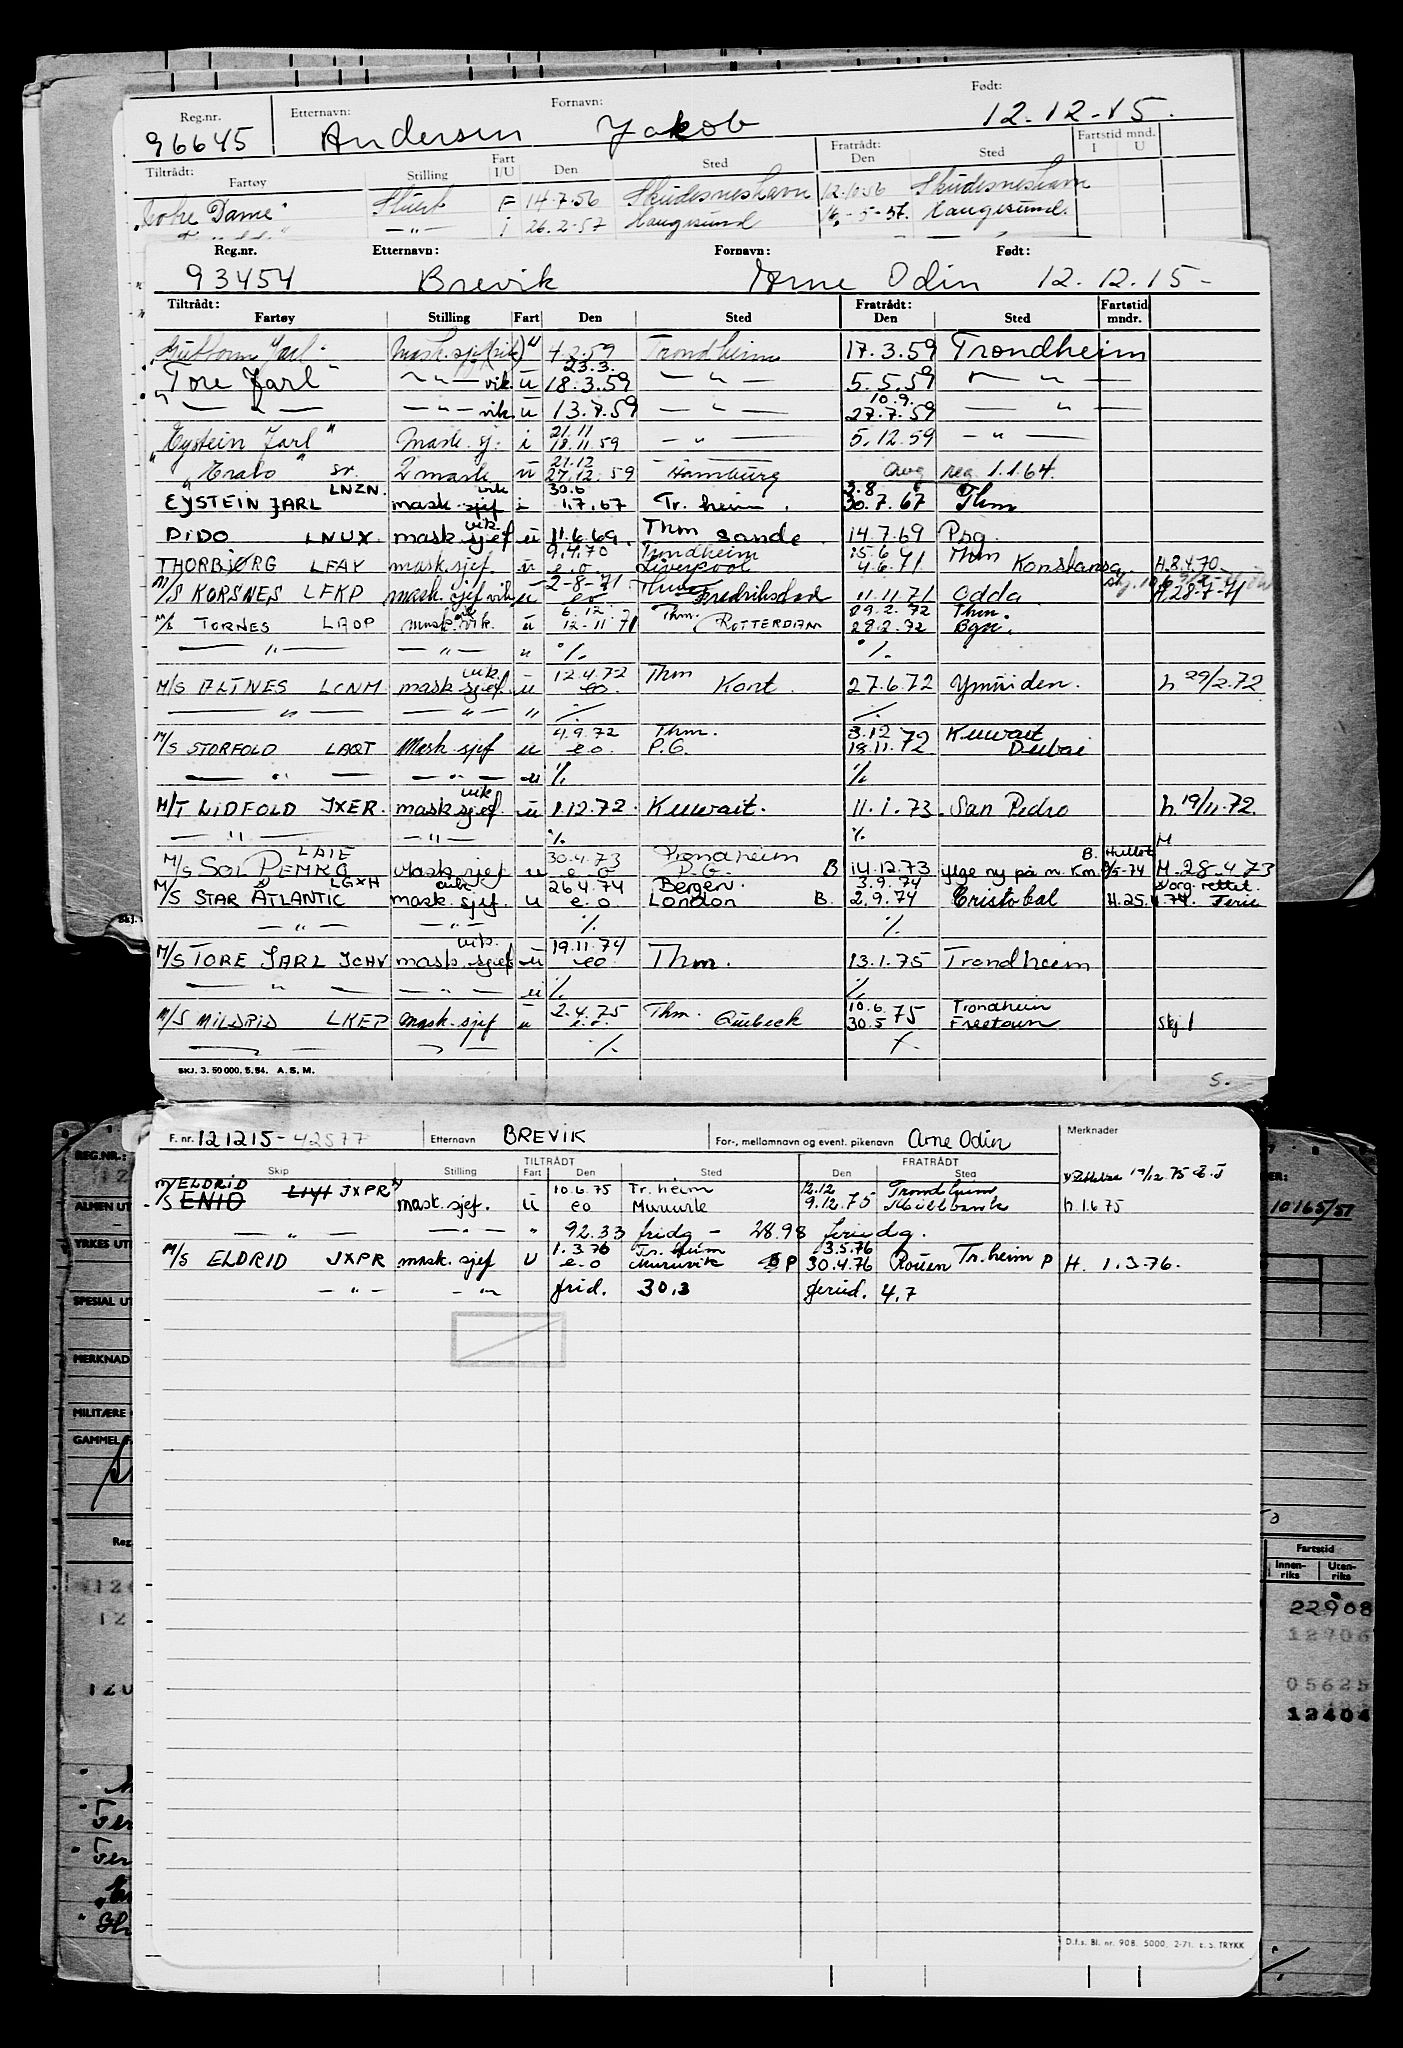 Reg.nr. Etternavn: Fornavn: Født:
96645 Andersen Jakob 12.12.15.
Tiltrådt: Fartøy Stilling Fart I/U Den Sted Fratrådt: Den Sted Fartstid mnd. I U
Dame" F 14.7.56 Skudesneshavn 12.10.56 Skudesneshavn
— " — i 26.2.57 Haugesund -5-57. Haugesund.
Reg.nr. Etternavn: Fornavn: Født:
93454 Brevik Arne Odin 12.12.15-
Tiltrådt: Fratrådt: Fartstid
Fartøy Stilling Fart Den Sted Den Sted mndr.
"Guttorm Jarl" Mask.sjef(vik) 4.2.59 Trondheim 17.3.59 Trondheim
23.3.
"Tore Jarl" — " — vik. u 18.3.59 — " — 5.5.59 — " —
10.9.
— " — — " — vik. u 13.7.59 — " — 27.7.59 — " —
21.11
"Eystein Jarl" Mask.sj. i 18.11.59 — " — 5.12.59 — " —
21.12
2 mask. u 27.12.59 Hamburg avg reg 1.1.64.
LNZN. vik 30.6 3.8
EYSTEIN JARL mask.sjef i 1.7.67 Tr.heim. 30.7.67 Thm
vik.
DIDO LNUX. mask.sjef u 11.6.69. Thm Sande. 14.7.69 Psg.
9.4.70 Trondheim 15.6.71 Thm
THORBJØRG LFAY mask.sjef. u e.o. Liverpool 4.6.71 Konstansa H.8.4.70
-2-8-71 Thm
M/S KORSNES LFKP mask.sjef vik u eo Fredrikstad 11.11.71 Odda H.28-7-71
6.12. Thm. 29.2.72 Thm.
M/S TORNES LAOP mask.vik. u 12-11-71 ROTTERDAM 28.2.72 Bgn.
— " — — " — u % %
vik. 12.4.72 Thm
M/S ALTNES LCNM mask.sjef. u eo. Kont. 27.6.72 Ymuiden. h 29/2.72
— " — — " — " % %
4.9.72 Thm. 3.12 Kuwait
M/S STORFOLD LAQT Mask.sjef u e.o. P.G. 18.11.72 Dubai
— " — — " — u % %
vik
M/T LIDFOLD JXER. mask.sjef. u 1.12.72. Kuwait. 11.1.73. San Pedro h.19/11.72.
— " — — " — % %
LAIE 30.4.73 Trondheim B. M
M/S SOL Mask.sjef u e.o P.G. B 14.12.73 ny på m. Km. /5-74 H.28.4.73
LGXH vik 26.4.74 Bergen. 3.9.74
M/S STAR ATLANTIC mask.sjef. u e.o. London B. 2.9.74 Cristobal H.25.4.74. Ferie
— " — — " — % %
vik. 19.11.74
M/S TORE JARL JCHV mask.sjef u eo Thm. 13.1.75 Trondheim
— " — — " — u % %
2.4.75 Thm. 10.6.75 Trondheim
M/S MILDRID LKEP Mask.sjef u e.o. Quebeck 30.5 Freetown Skj.1
— " — — " — % %
SKJ. 3. 50 000. 5. 54. A.S.M. S.
F.nr. 121215-42577 Etternavn BREVIK For-, mellomnavn og event. pikenavn Arne Odin Merknader
TILTRÅDT FRATRÅDT
Skip Stilling Fart Den Sted Den Sted
M/S ELDRID 10.6.75 Tr.heim 12.12 Trondheim 19/12.75
ENIO JXPR mask.sjef. u eo 9.12.75 h.1.6.75
— " — — " — " 92.33 fridg — 28.98 feriedg.
1.3.76 Tr.heim 13.5.76
M/S ELDRID JXPR mask.sjef U e.o Muruvik B P 30.4.76 Rouen Tr.heim P H. 1.3.76.
— " — — " — frid. 30,3 feried. 4,7
D.f.s. Bl. nr. 908. 5000. 2-71. E. S. TRYKK
REG.NR.:
ALMEN UT
YRKES UT
SPESIAL UT
MERKNAD
MILITÆRE
GAMMEL
Reg.
10165/51
Fartstid
Innen-riks Uten-riks
22908
12706
05625
12404